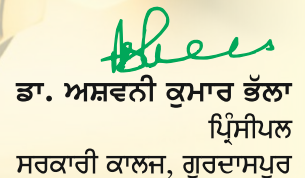 ਡਾ. ਅਸ਼ਵਨੀ ਕੁਮਾਰ ਭੱਲਾ
ਪ੍ਰਿੰਸੀਪਲ
ਸਰਕਾਰੀ ਕਾਲਜ, ਗੁਰਦਾਸਪੁਰ